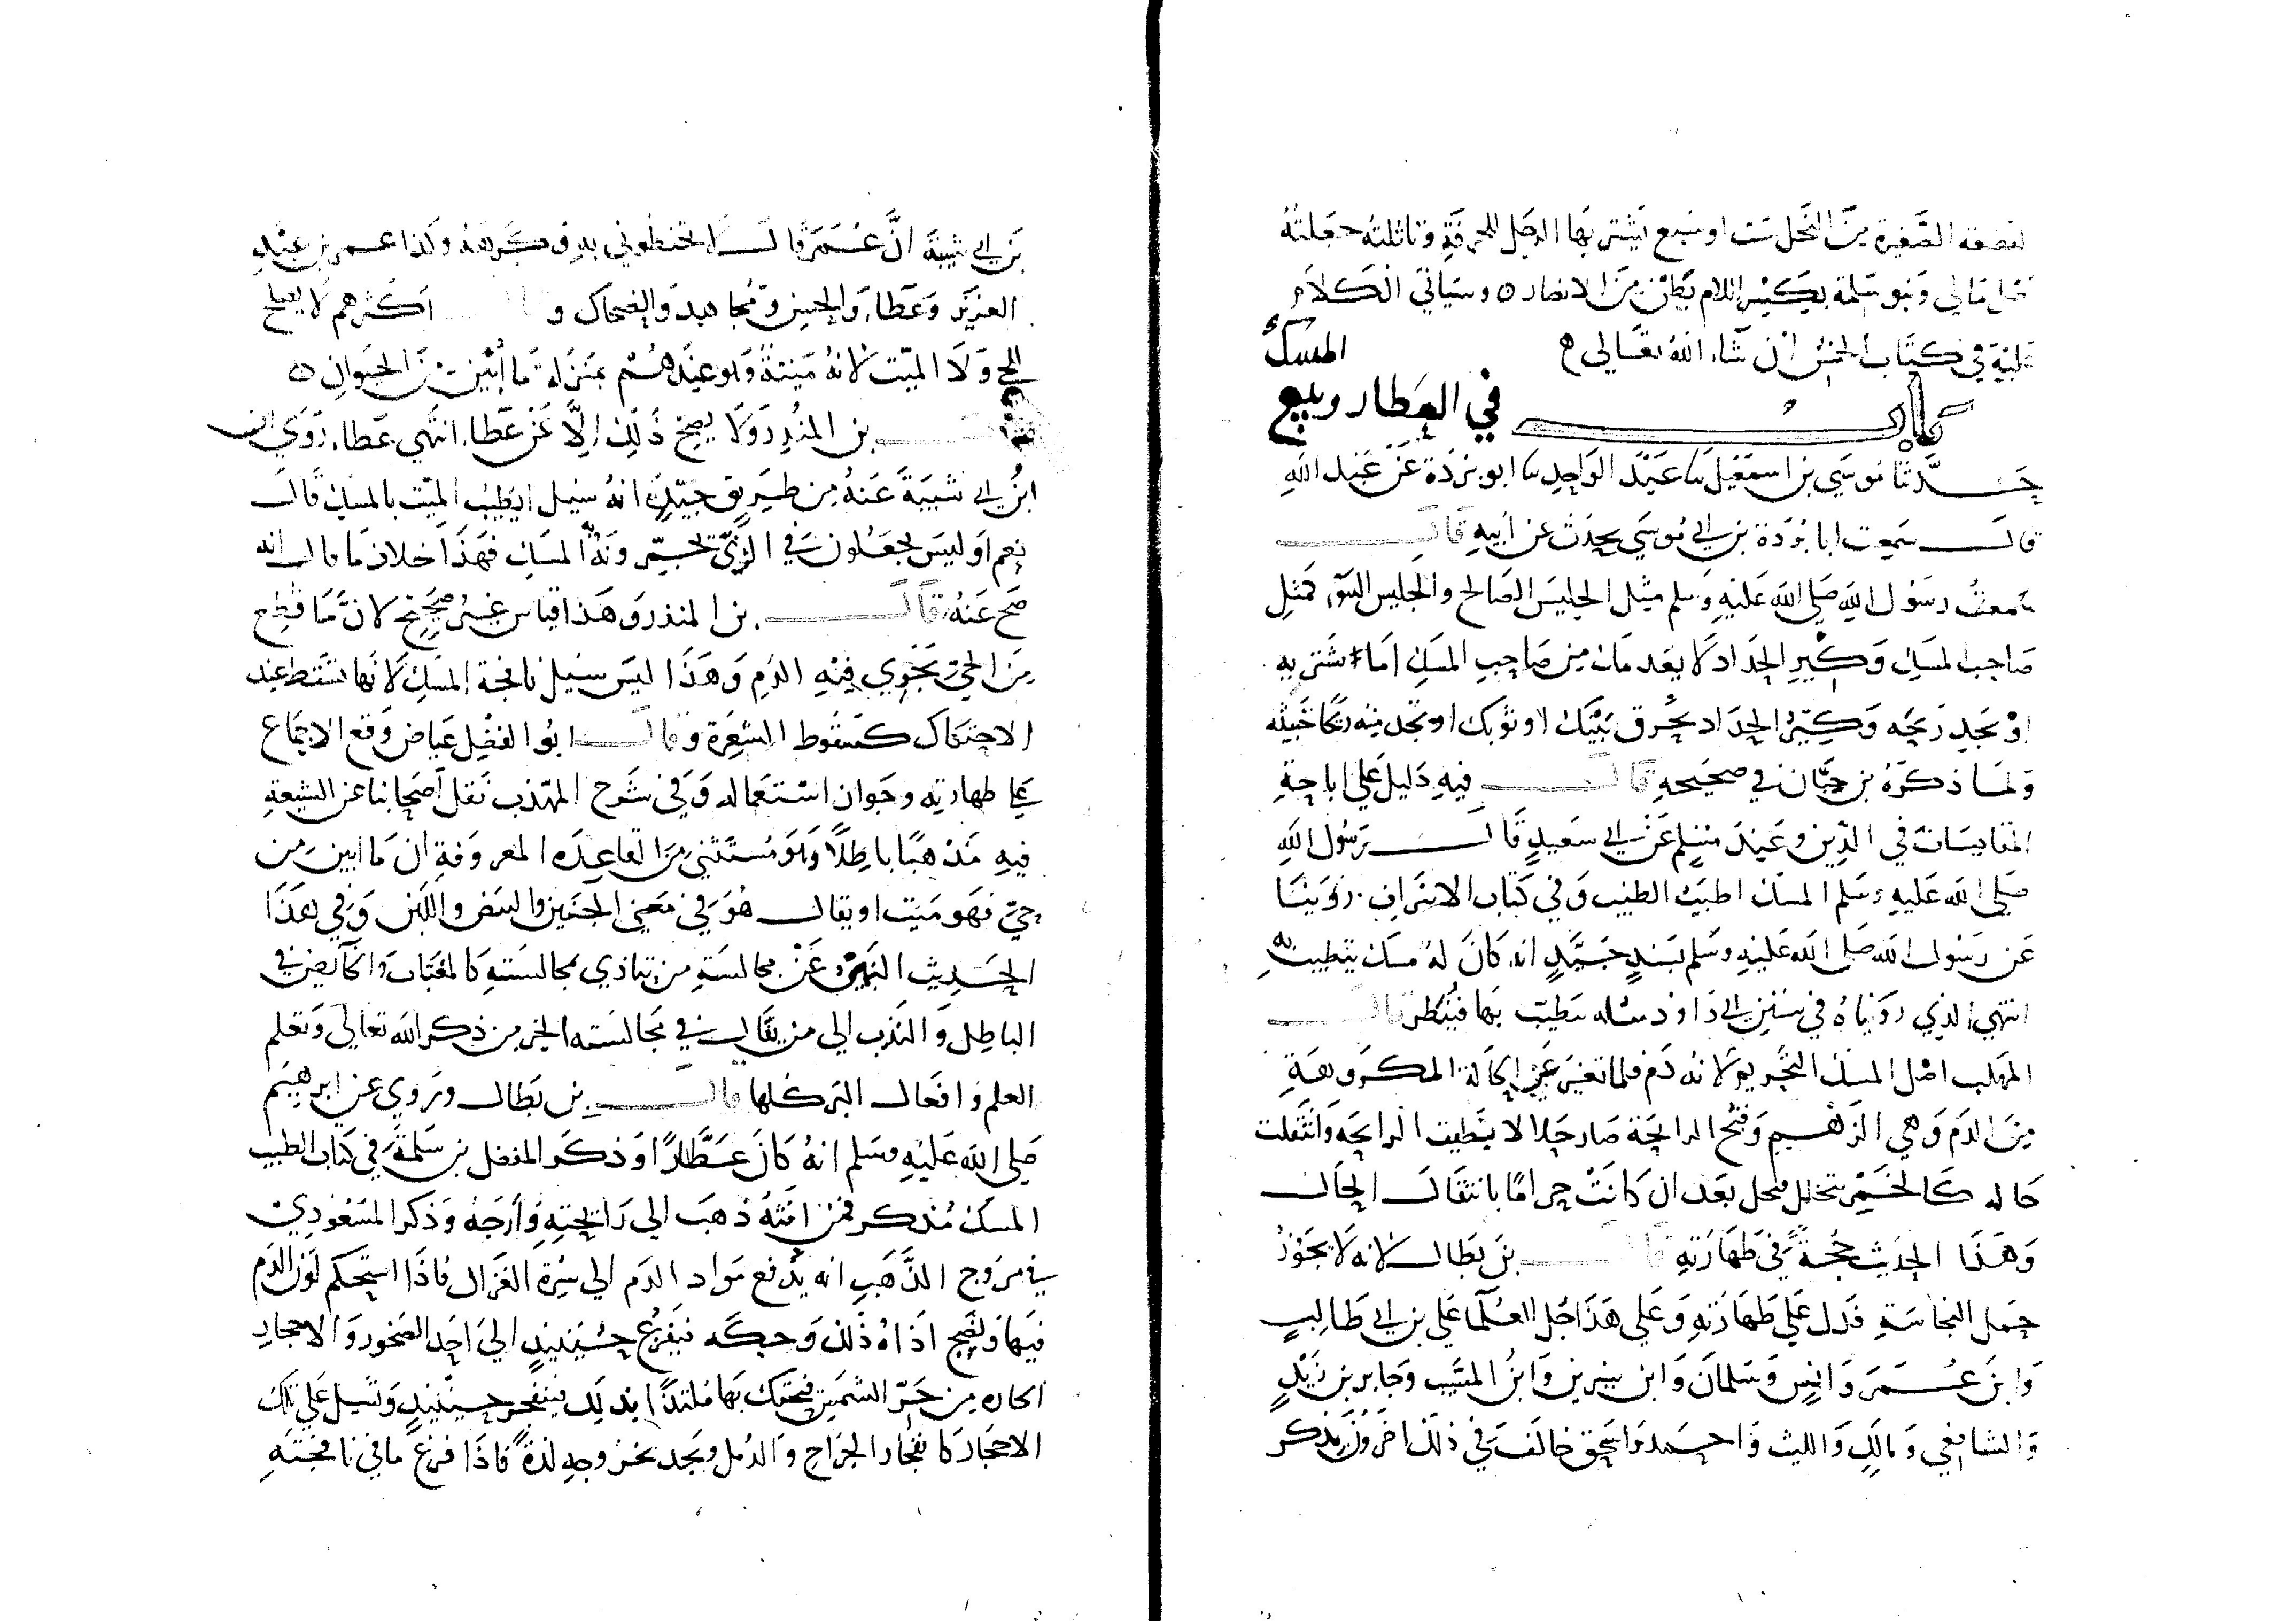 لقطعة الصغيرة من النخل ست او سبع يشتريها الرجل للخرفة وتاثلته جعلته
اصل مالي وبنو سلمة بكسر اللام بطن من الانصار ٥ وسياتي الكلام
عليه في كتاب الخمس ان شاء الله تعالى ه
باب في العطار وبيع المسك
حدثنا موسي بن اسمعيل ثنا عبد الواحد ثنا ابو بردة عن عبد الله
قال سمعت ابا بردة بن ابي موسي يحدث عن ابيه قال
سمعت رسول الله صلى الله عليه وسلم مثل الجليس الصالح والجليس السوء كمثل
صاحب المسك وكير الحداد لا يعدمك من صاحب المسك اما تشتريه
او تجد ريحه وكير الحداد يحرق بيتك او ثوبك او تجد منه ريحا خبيثه
ولما ذكره بن حبان في صحيحه قال فيه دليل على اباحة
المقايسات في الدين وعند مسلم عن ابي سعيد قال رسول الله
صلى الله عليه وسلم المسك اطيب الطيب وفي كتاب الاشراف روينا
عن رسول الله صلى الله عليه وسلم بسند جيد انه كان له مسك يتطيب به
انتهي الذي رويناه في سنن ابي داود سكه يتطيب بها فينظر قال
المهلب اصل المسك التحريم لانه دم فلما تغير عن الحالة المكروهة
من الدم وهي الزهم وقبح الرايحة صار حلالا بطيب الرايحة وانتقلت
حاله كالخمر تتخلل فتحل بعد ان كانت حراما بانتقال الحال
وهذا الحديث حجة في طهارته قال بن بطال لانه لا يجوز
حمل النجاسة فدل على طهارته وعلى هذا جل العلما علي بن ابي طالب
وابن عمر وانس وسلمان وابن سيرين وابن المسيب وجابر بن زيد
والشافعي ومالك والليث واحمد واسحق خالف في ذلك اخرون فذكر
بن ابي شيبة ان عمر قال لا تحنطوني به وكرهه وكذا عمر بن عبد
العزيز وعطاء والحسن ومجاهد والضحاك وقال اكثرهم لا يصلح
للحي ولا الميت لانه ميتة وهو عندهم بمنزلة ما أبين من الحيوان ٥
قال بن المنذر ولا يصح ذلك الا عن عطاء انتهي عطاء روي ان
ابن ابي شيبة عنه من طريق جيد انه سئل ايطيب الميت بالمسك قال
نعم اوليس يجعلون في الذي تجمرونه المسك فهذا خلاف ما قال انه
صح عنه قال بن المنذر وهذا قياس غير صحيح لان ما قطع
من الحي يجري فيه الدم وهذا ليس سبيل نافجة المسك لانها تسقط عند
الاحتكاك كسقوط الشعرة وقال ابو الفضل عياض وقع الاجماع
على طهارته وجواز استعماله وفي شرح المهذب نقل اصحابنا عن الشيعة
فيه مذهبا باطلا وهو مستثني من القاعده المعروفة ان ما ابين من
حي فهو ميت او يقال هو في معني الجنين والبيض واللبن وفي هذا
الحديث النهي عن مجالسة من يتاذي بمجالسته كالمغتاب والخايض في
الباطل والندب الى من ينال في مجالسته الخير من ذكر الله تعالى وتعلم
العلم وافعال البر كلها قال بن بطال وتروي عن ابرهيم
صلى الله عليه وسلم انه كان عطارا وذكر المفضل بن سلمة في كتاب الطيب
المسك مذكر فمن انثه ذهب الى رائحته وأرجه وذكر المسعودي
في مروج الذهب انه يدفع مواد الدم الى سرة الغزال فاذا استحكم لون الدم
فيها ونضج اذاه ذلك وحكه فيفزع حينئذ الى احد الصخور والاحجار
الحاره من حر الشمس فيحتك بها ملتذا بذلك فينفجر حينئذ وتسيل على تلك
الاحجار كانفجار الجراح والدمل ويجد بخروجه لذة فاذا فرغ ما في نافجته